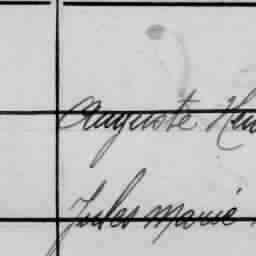 Auguste Hen
Jules Marie